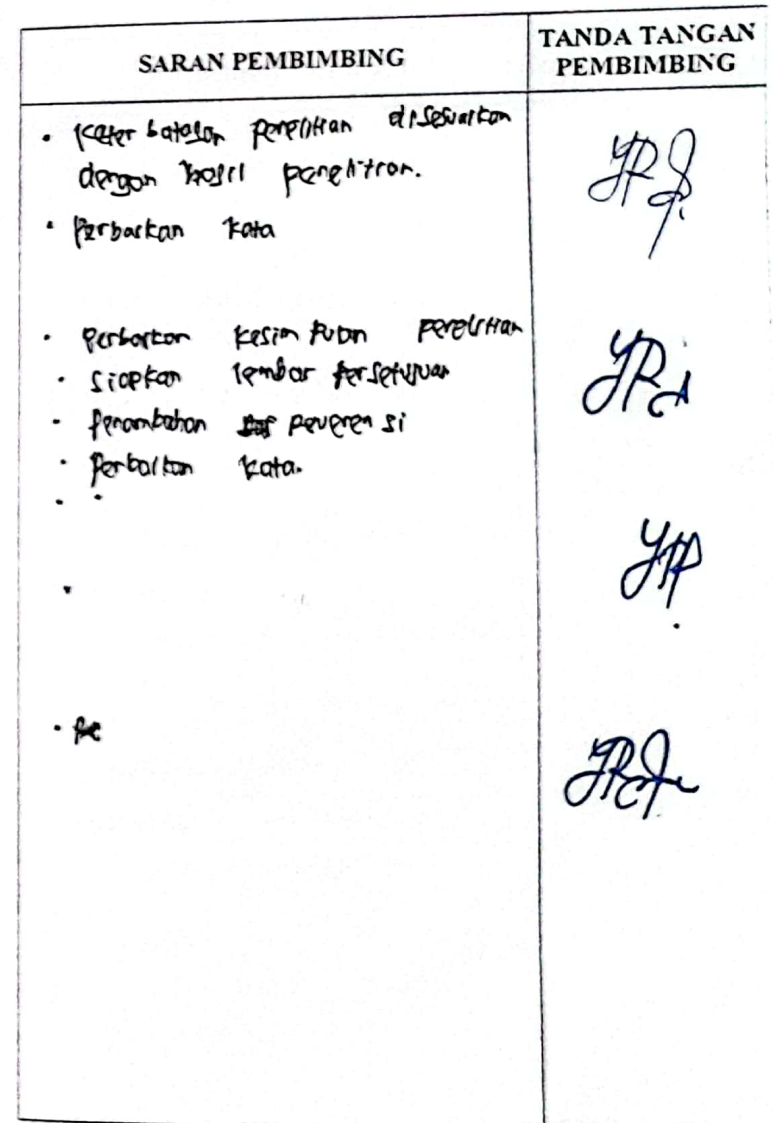 SARAN PEMBIMBING
TANDA TANGAN
PEMBIMBING
• Keterbatasan penelitian disesuaikan
dengan hasil penelitian.
• Perbaikan kata
• Perbaikan kesimpulan penelitian
• siapkan lembar persetujuan
• Penambahan referensi
• Perbaikan kata.